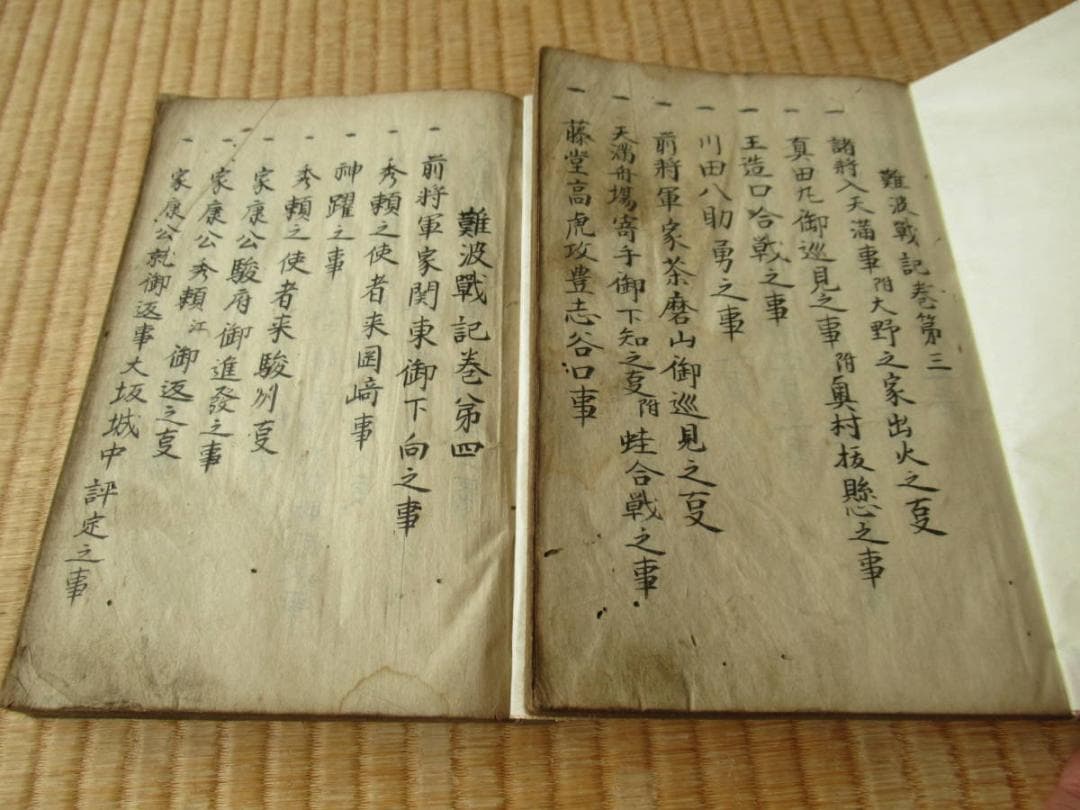 難波戦記巻第三
一 諸将入天満事附大野之家出火之叓
一 真田丸御巡見之事附奥村抜懸之事
一 玉造口合戦之事
一 川田八助勇之事
一 前将軍家茶磨山御巡見之叓
一 天満舟場寄手御下知之叓附蛙合戦之事
一 藤堂高虎攻豊志谷口事
難波戰記巻第四
一 前将軍家関東御下向之事
一 秀頼之使者来岡﨑事
一 神躍之事
一 秀頼之使者来駿州叓
一 家康公駿府御進發之事
一 家康公秀頼江御返之叓
一 家康公就御返事大坂城中評定之事